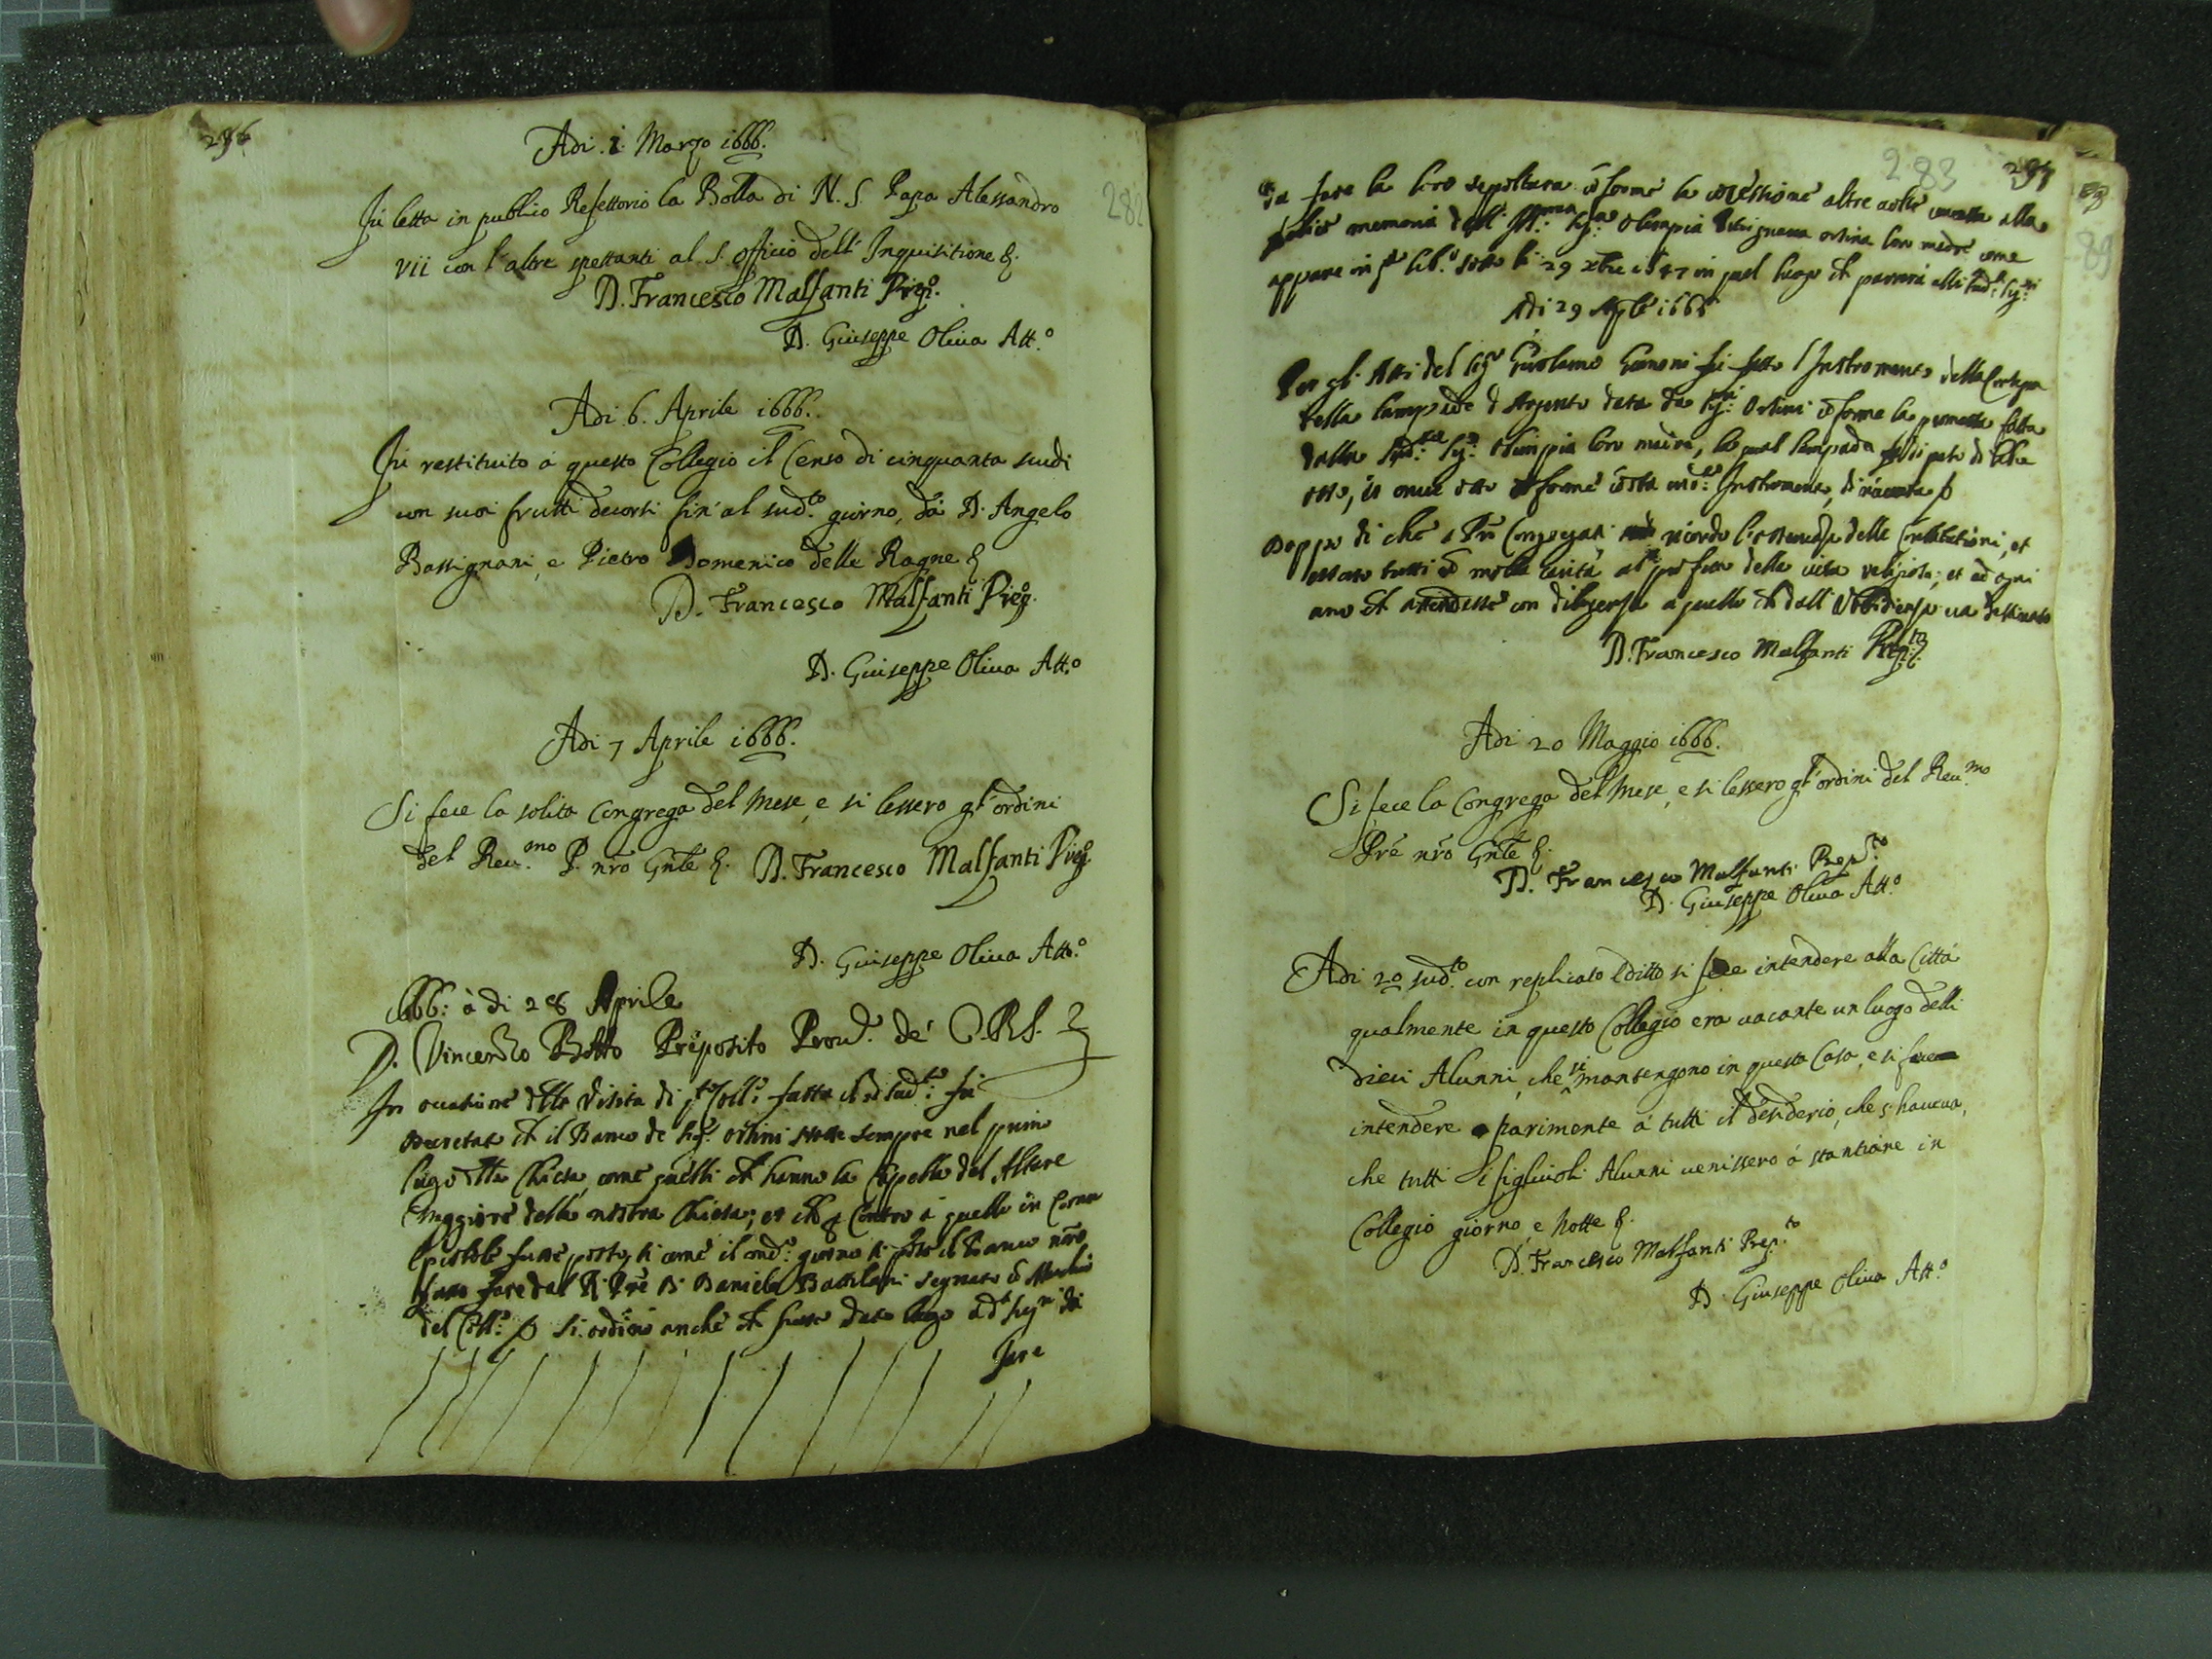 296
Adi. i. Marzo i666.
Fù letta in publico Refettorio la Bolla di N. S. Papa Alessandro
VII con l'altre spettanti al S. Officio dell'Inquisitione &.
D. Francesco Malfanti Prep.
D. Giuseppe Oliua Att.º
282
Adi. 6. Aprile i666.
Fù restituito à questo Collegio il Censo di cinquanta scudi
con suoi frutti decorsi fin'al sud.to giorno, da D. Angelo
Bassignani, e Pietro Domenico delle Ragne &
D. Francesco Malfanti Prep.
D. Giuseppe Oliua Att.º
Adi 7 Aprile i666.
Si fece la solita Congrega del Mese, e si lessero gl'ordini
del Reu.mo P. nrõ Gñle &. D. Francesco Malfanti Prep.
D. Giuseppe Oliua Att.º
i666: à di 28 Aprile
D. Vincenzo Botto Preposito Prou. de' C.R.S.
In occasione della Visita di q.to Coll.º fatta il di sud.to: fù
decretato ch il Banco de Sig.ri Orsini stasse sempre nel primo
luogo della Chiesa, come quelli ch hanno la Cappella del Altare
maggiore della nostra Chiesa; et ch contro à quello in Cornu
Epistole fusse posto, si come il giorno si pose il Banco nrõ
fatto fare dal R. Prẽ D. Daniele segnato
del Coll.º Si ordinò anche ch fusse dato luogo a d.i Sig.ri di
fare
283 297
fare la loro sepoltura cõforme la cõcessione altre uolte concessa alla
felice memoria dell' Ill.ma Sig.ra Olimpia Orsina loro madre come
appare in q.to lib.º sotto li 29 Xbre in quel luogo ch parerà alli sud.i Sig.ri
Adi 29 Aple i666
Per gli Atti del Sig.r Girolamo fù fatto l'Instromento della
della lampade d'Argento data da Sig.ri Orsini cõforme la promessa fatta
dalla Sig.ra Olimpia loro madre, la qual lampada di peso di libre
otto, et onze otto cõforme cõsta Instromento,
Doppo di che i Prĩ Congregati ricordò l'osseruanza delle Constitutioni, et
essortò tutti cõ molta carità al profitto della uita religiosa; et ad ogni
uno ch attendesse con diligenza à quello ch dall'Obbedienza uia destinato
D. Francesco Malfanti Prep.to
Adi 20 Maggio i666.
Si fece la Congrega del Mese, e si lessero gl'ordini del Reu.mo
Prẽ nrõ Gñle &.
D. Francesco Malfanti Prep.to
D. Giuseppe Oliua Att.º
Adi 20 sud.to con replicato Editto si fece intendere alla Città
qualmente in questo Collegio era uacante un luogo delli
dieci Alunni, che si mantengono in questa Casa, e si fece
intendere parimente à tutti il desiderio, che s'haueua,
che tutti li figliuoli Alunni uenissero à stantiare in
Collegio giorno, e notte &.
D. Francesco Malfanti Prep.to
D. Giuseppe Oliua Att.º
89